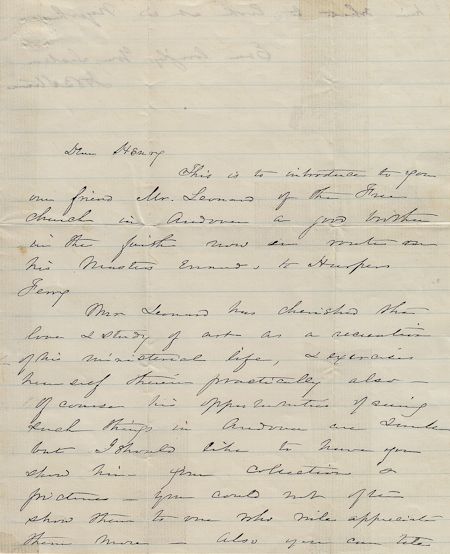 Dear Henry
This is to introduce to you
our friend Mr. Leonard of the Free
Church in Andover a good brother
in the faith now en route on
his Masters Errand, to Harpers
Ferry
Mr Leonard has cherished the
love & study of art as a recreation
of his ministerial life, & exercises
himself therein practically also –
Of course his opportunities of seeing
such things in Andover are
but I should like to have you
show him your collections &
pictures – you could not often
show them to one who will appreciate
them more – Also you can